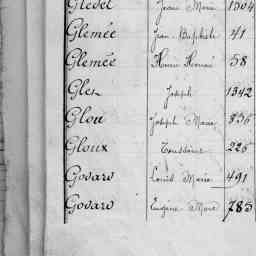 Gledel Jean Marie 1504
Glemée Jean Baptiste 41
Glemée 58
Gles Joseph 1342
Glou Joseph Marie 836
Gloux Toussaint 226
Godard Louis Marie 491
Godard Eugène Marie 783